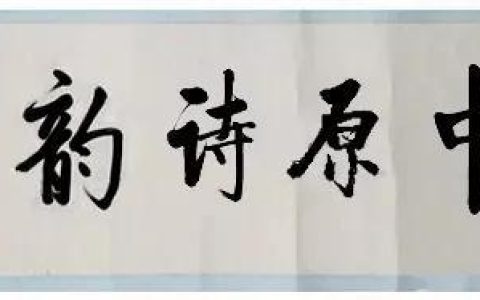 中原诗韵